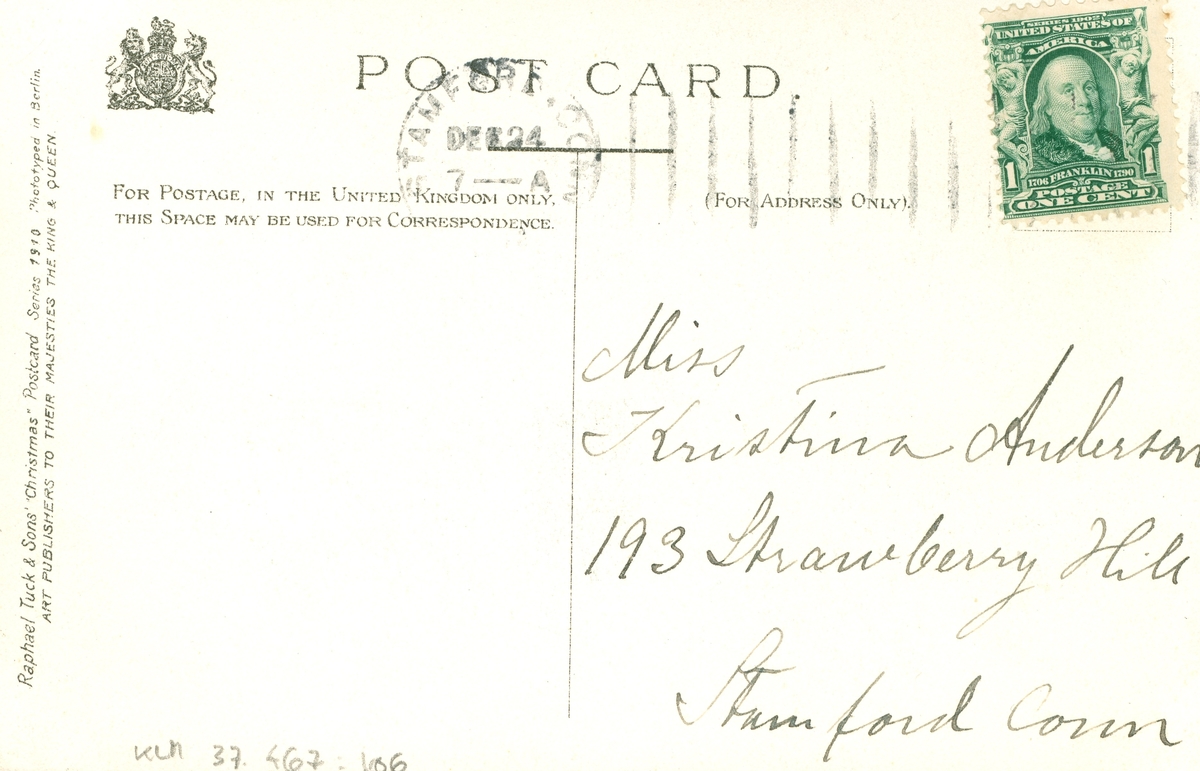 POST CARD.
STAMFORD,
DEC 24
7 — A
CONN.
FOR POSTAGE, IN THE UNITED KINGDOM ONLY,
THIS SPACE MAY BE USED FOR CORRESPONDENCE.
(FOR ADDRESS ONLY).
SERIES 1902
UNITED STATES OF
AMERICA
1706 FRANKLIN 1790
1 POSTAGE 1
ONE CENT
Raphael Tuck & Sons' "Christmas" Postcard Series 1910 Phototyped in Berlin.
ART PUBLISHERS TO THEIR MAJESTIES THE KING & QUEEN.
Miss
Kristina Anderson
193 Strawberry Hill
Stamford Conn
KLM 37. 467: 106